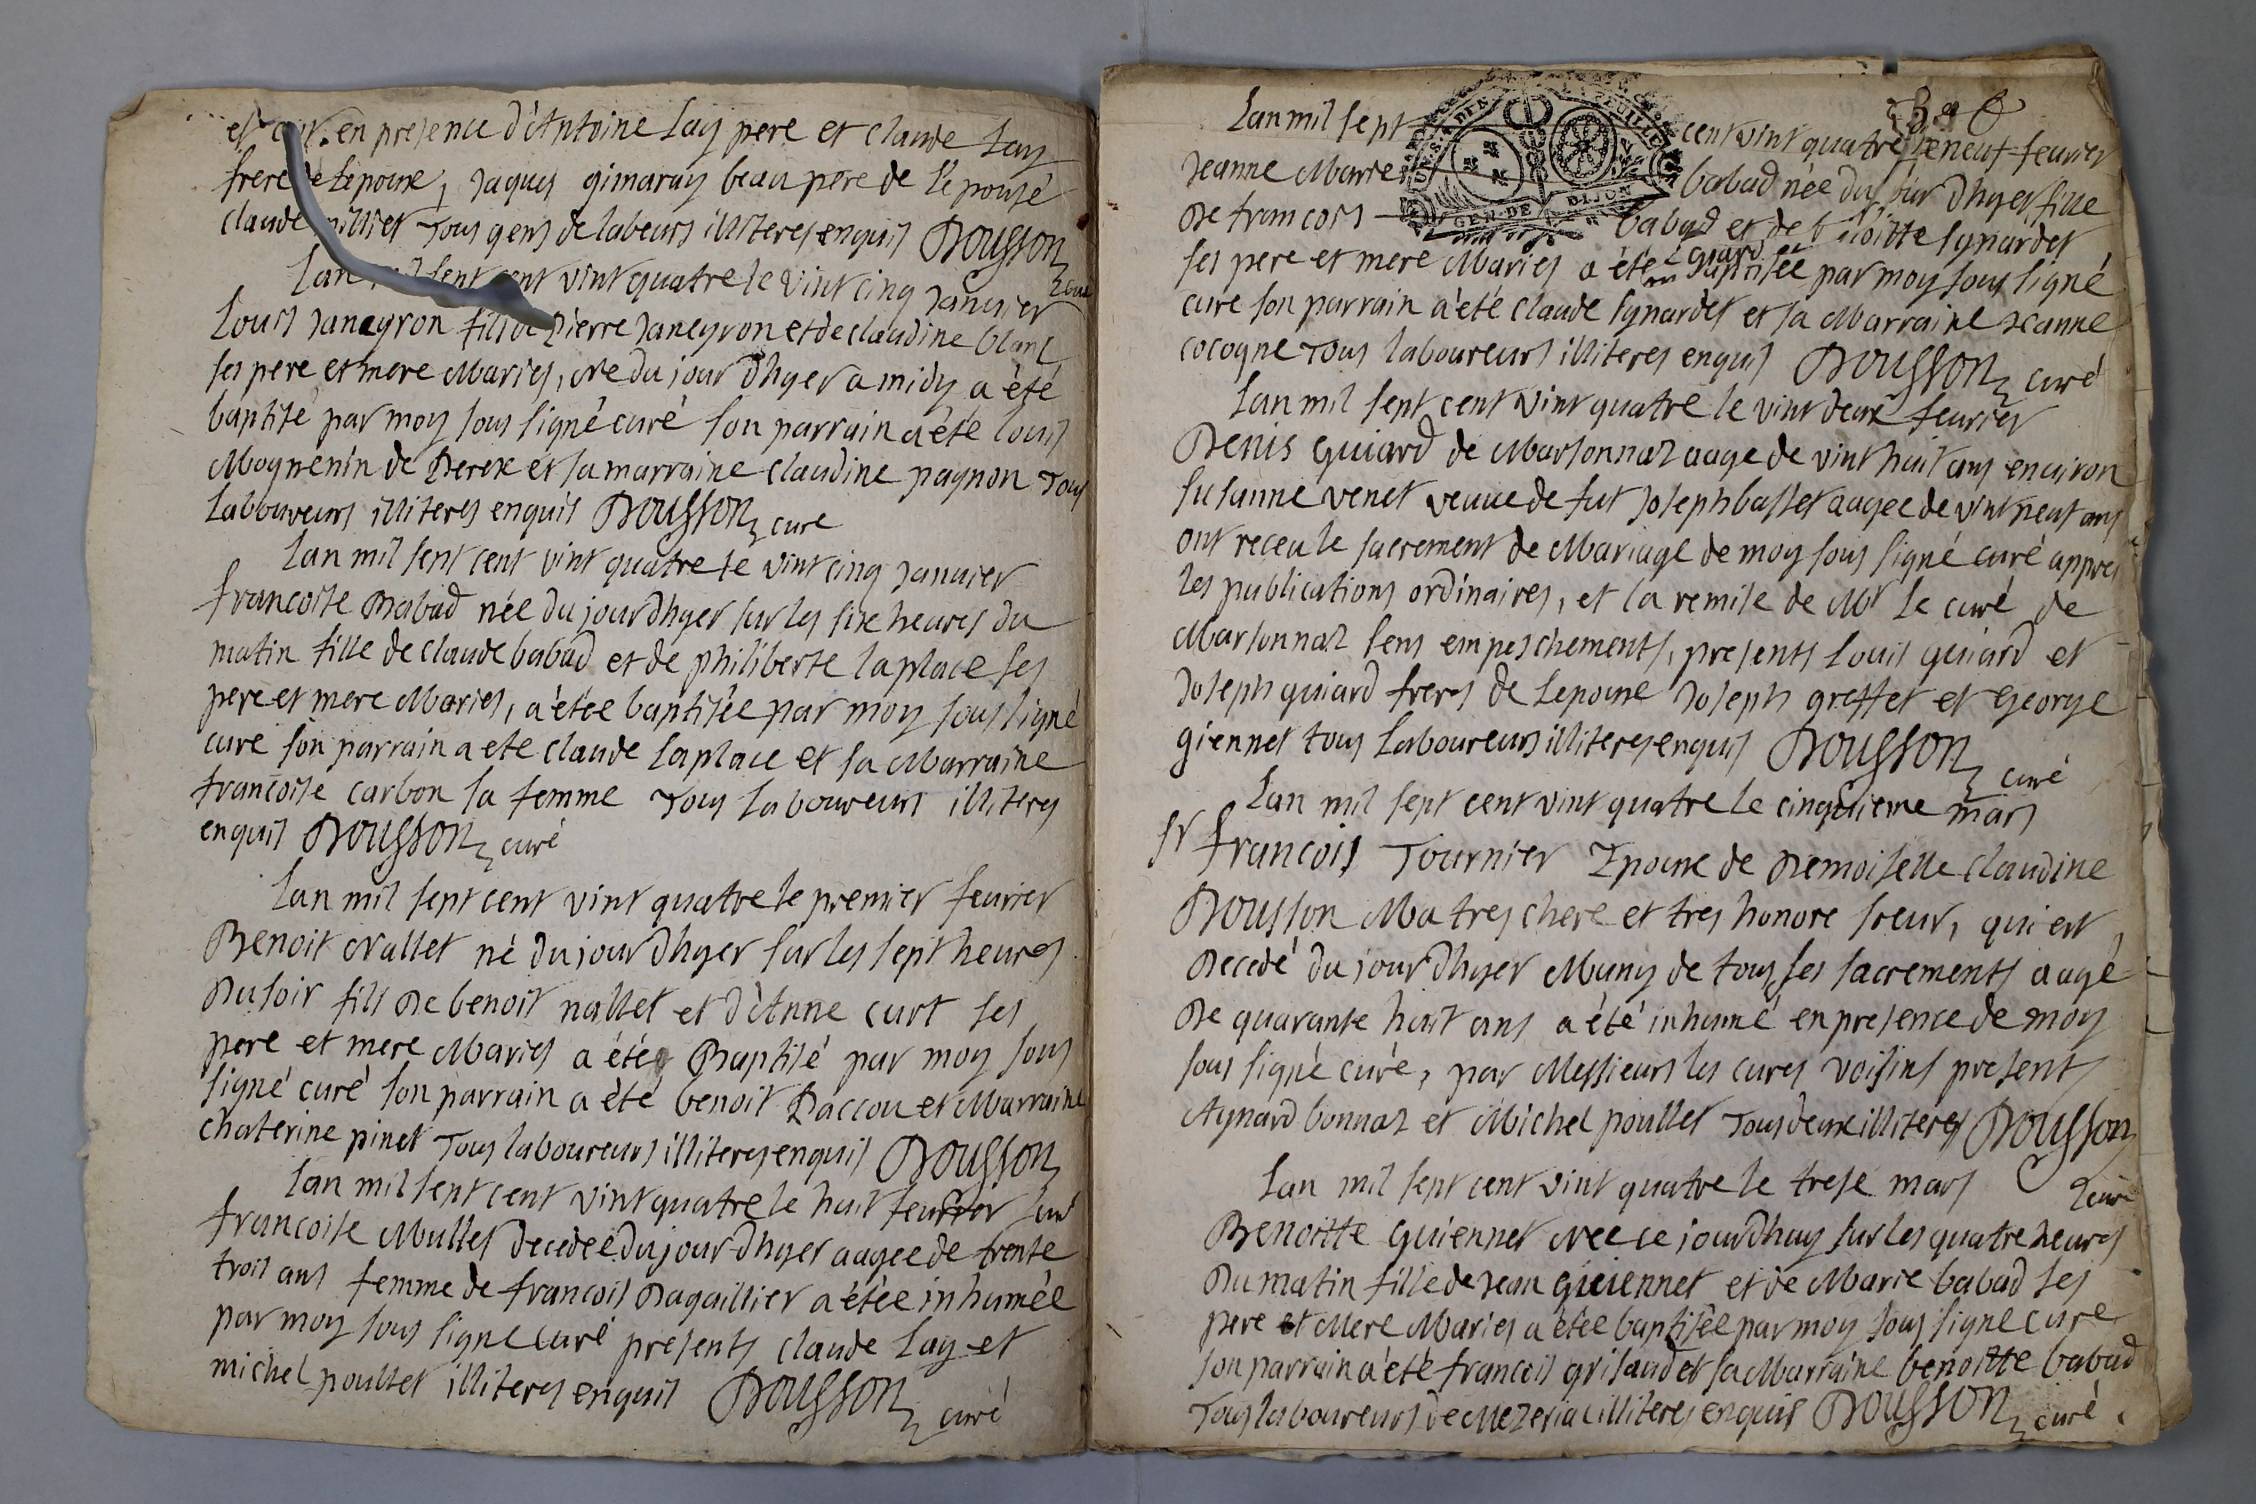 en presence d'Antoine Lay pere et claude Lay
frere de Lepouse, Jaques gimaray beau pere de l'epousé
claude millier Tous gens de labeurs illiteres enquis Dousson
curé
Lan mil sept cent vint quatre le vint cinq Janvier
Louis Janeyron fils de Pierre Janeyron et de claudine blanc
ses pere et mere Maries, Né du jour d'hyer a midy a été
baptisé par moy sous signé curé son parrain a été Louis
Mognenin de Perex et sa marraine claudine pagnon Tous
Laboureurs illiteres enquis Dousson curé
Lan mil sept cent vint quatre le vint cinq Janvier
francoise Babad née du jour d'hyer sur les six heures du
matin fille de claude babad et de philiberte laplace ses
pere et mere Maries, a étée baptisée par moy sous signé
curé son parrain a eté claude Laplace et sa Marraine
francoise carbon sa femme Tous Laboureurs illiteres
enquis Dousson curé
Lan mil sept cent vint quatre le premier feurier
Benoit Nallet né du jour d'hyer sur les sept heures
Du soir fils De benoit nallet et d'Anne curt ses
pere et mere Maries a été Baptisé par moy sous
signé curé son parrain a été benoit Paccou et Marraine
chaterine pinet Tous laboureurs illiteres enquis Dousson
curé
Lan mil sept cent vint quatre le huit feurier
francoise Mullet decedée du jour d'hyer aagee de trente
trois ans femme de francois Dagaillier a étée inhumée
par moy sous signé curé presents claude Lay et
michel poullet illiteres enquis Dousson curé
Lan mil sept cent vint quatre le neuf feurier
GEN. DE DIJON
Jeanne Marie babad née du jour d'hyer fille
De francois babad et de benoitte synardet
ses pere et mere Maries a été baptisée par moy sous signé
curé son parrain a été claude synardet et sa Marraine Jeanne
cocogne Tous laboureurs illiteres enquis Dousson curé
Lan mil sept cent vint quatre le vint deux feurier
Denis Guiard de Marsonnaz aage de vint huit ans enuiron
Susanne venet veuue de fut Joseph basset aagee de vint neuf ans
ont receu le sacrement de Mariage de moy sous signé curé appres
les publications ordinaires, et la remise de Mr Le curé de
Marsonnaz sens empeschements, presents Louis guiard et
Joseph guiard freres de Lepoux Joseph greffet et George
giennet tous Laboureurs illiteres enquis Dousson curé
Lan mil sept cent vint quatre le cinquieme mars
sr francois Tournier Epoux de Demoiselle claudine
Dousson Ma tres chere et tres honore soeur, qui est
Decedé du jour d'hyer Muny de tous ses sacrements aagé
De quarante huit ans a été inhumé en presence de moy
sous signé curé, par Messieurs les cures voisins presents
Aynard bonnaz et Michel poullet Tous deux illiteres Dousson
curé
Lan mil sept cent vint quatre le trese mars
Benoitte Guiennet Née ce jourdhuy sur les quatre heures
Du matin fille de Jean Guiennet et de Marie babad ses
pere et Mere Maries a étée baptisée par moy sous signé curé
son parrain a été francois grisaud et sa Marraine benoitte babad
Tous laboureurs de Mezeria illiteres enquis Dousson curé